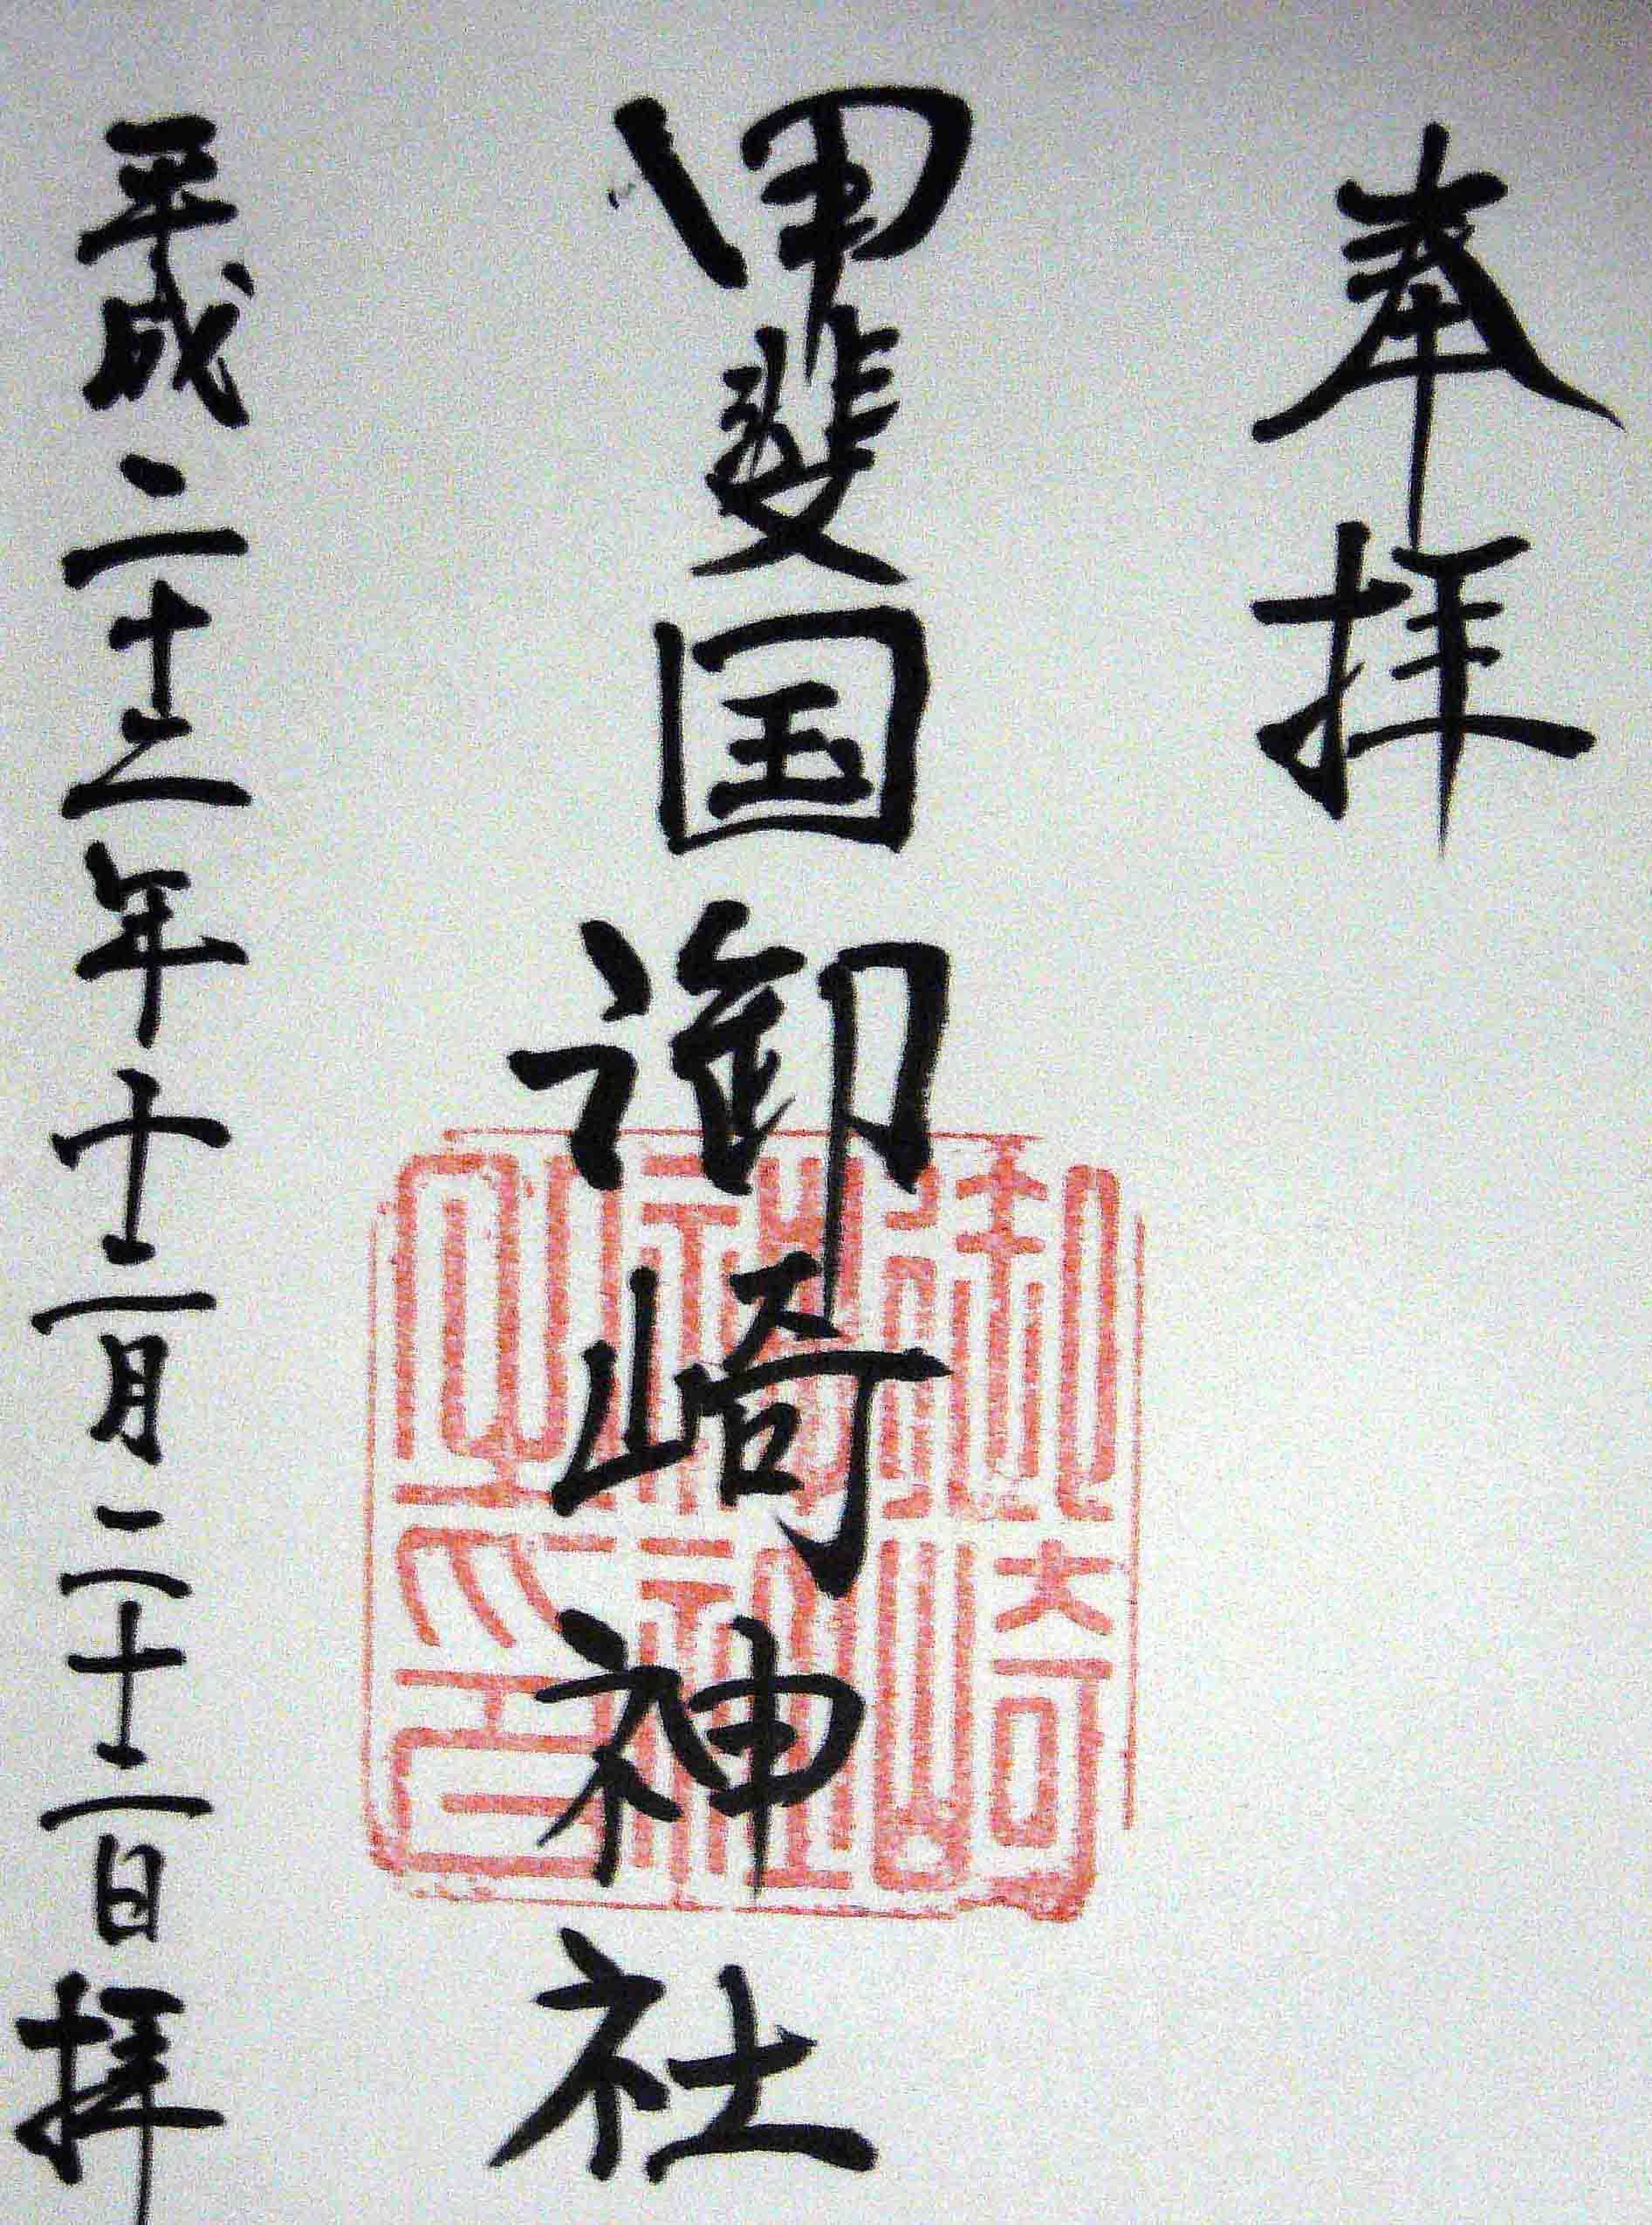 奉拝
甲斐国御崎神社
平成二十二年十二月二十二日拝
御崎
神社
之印